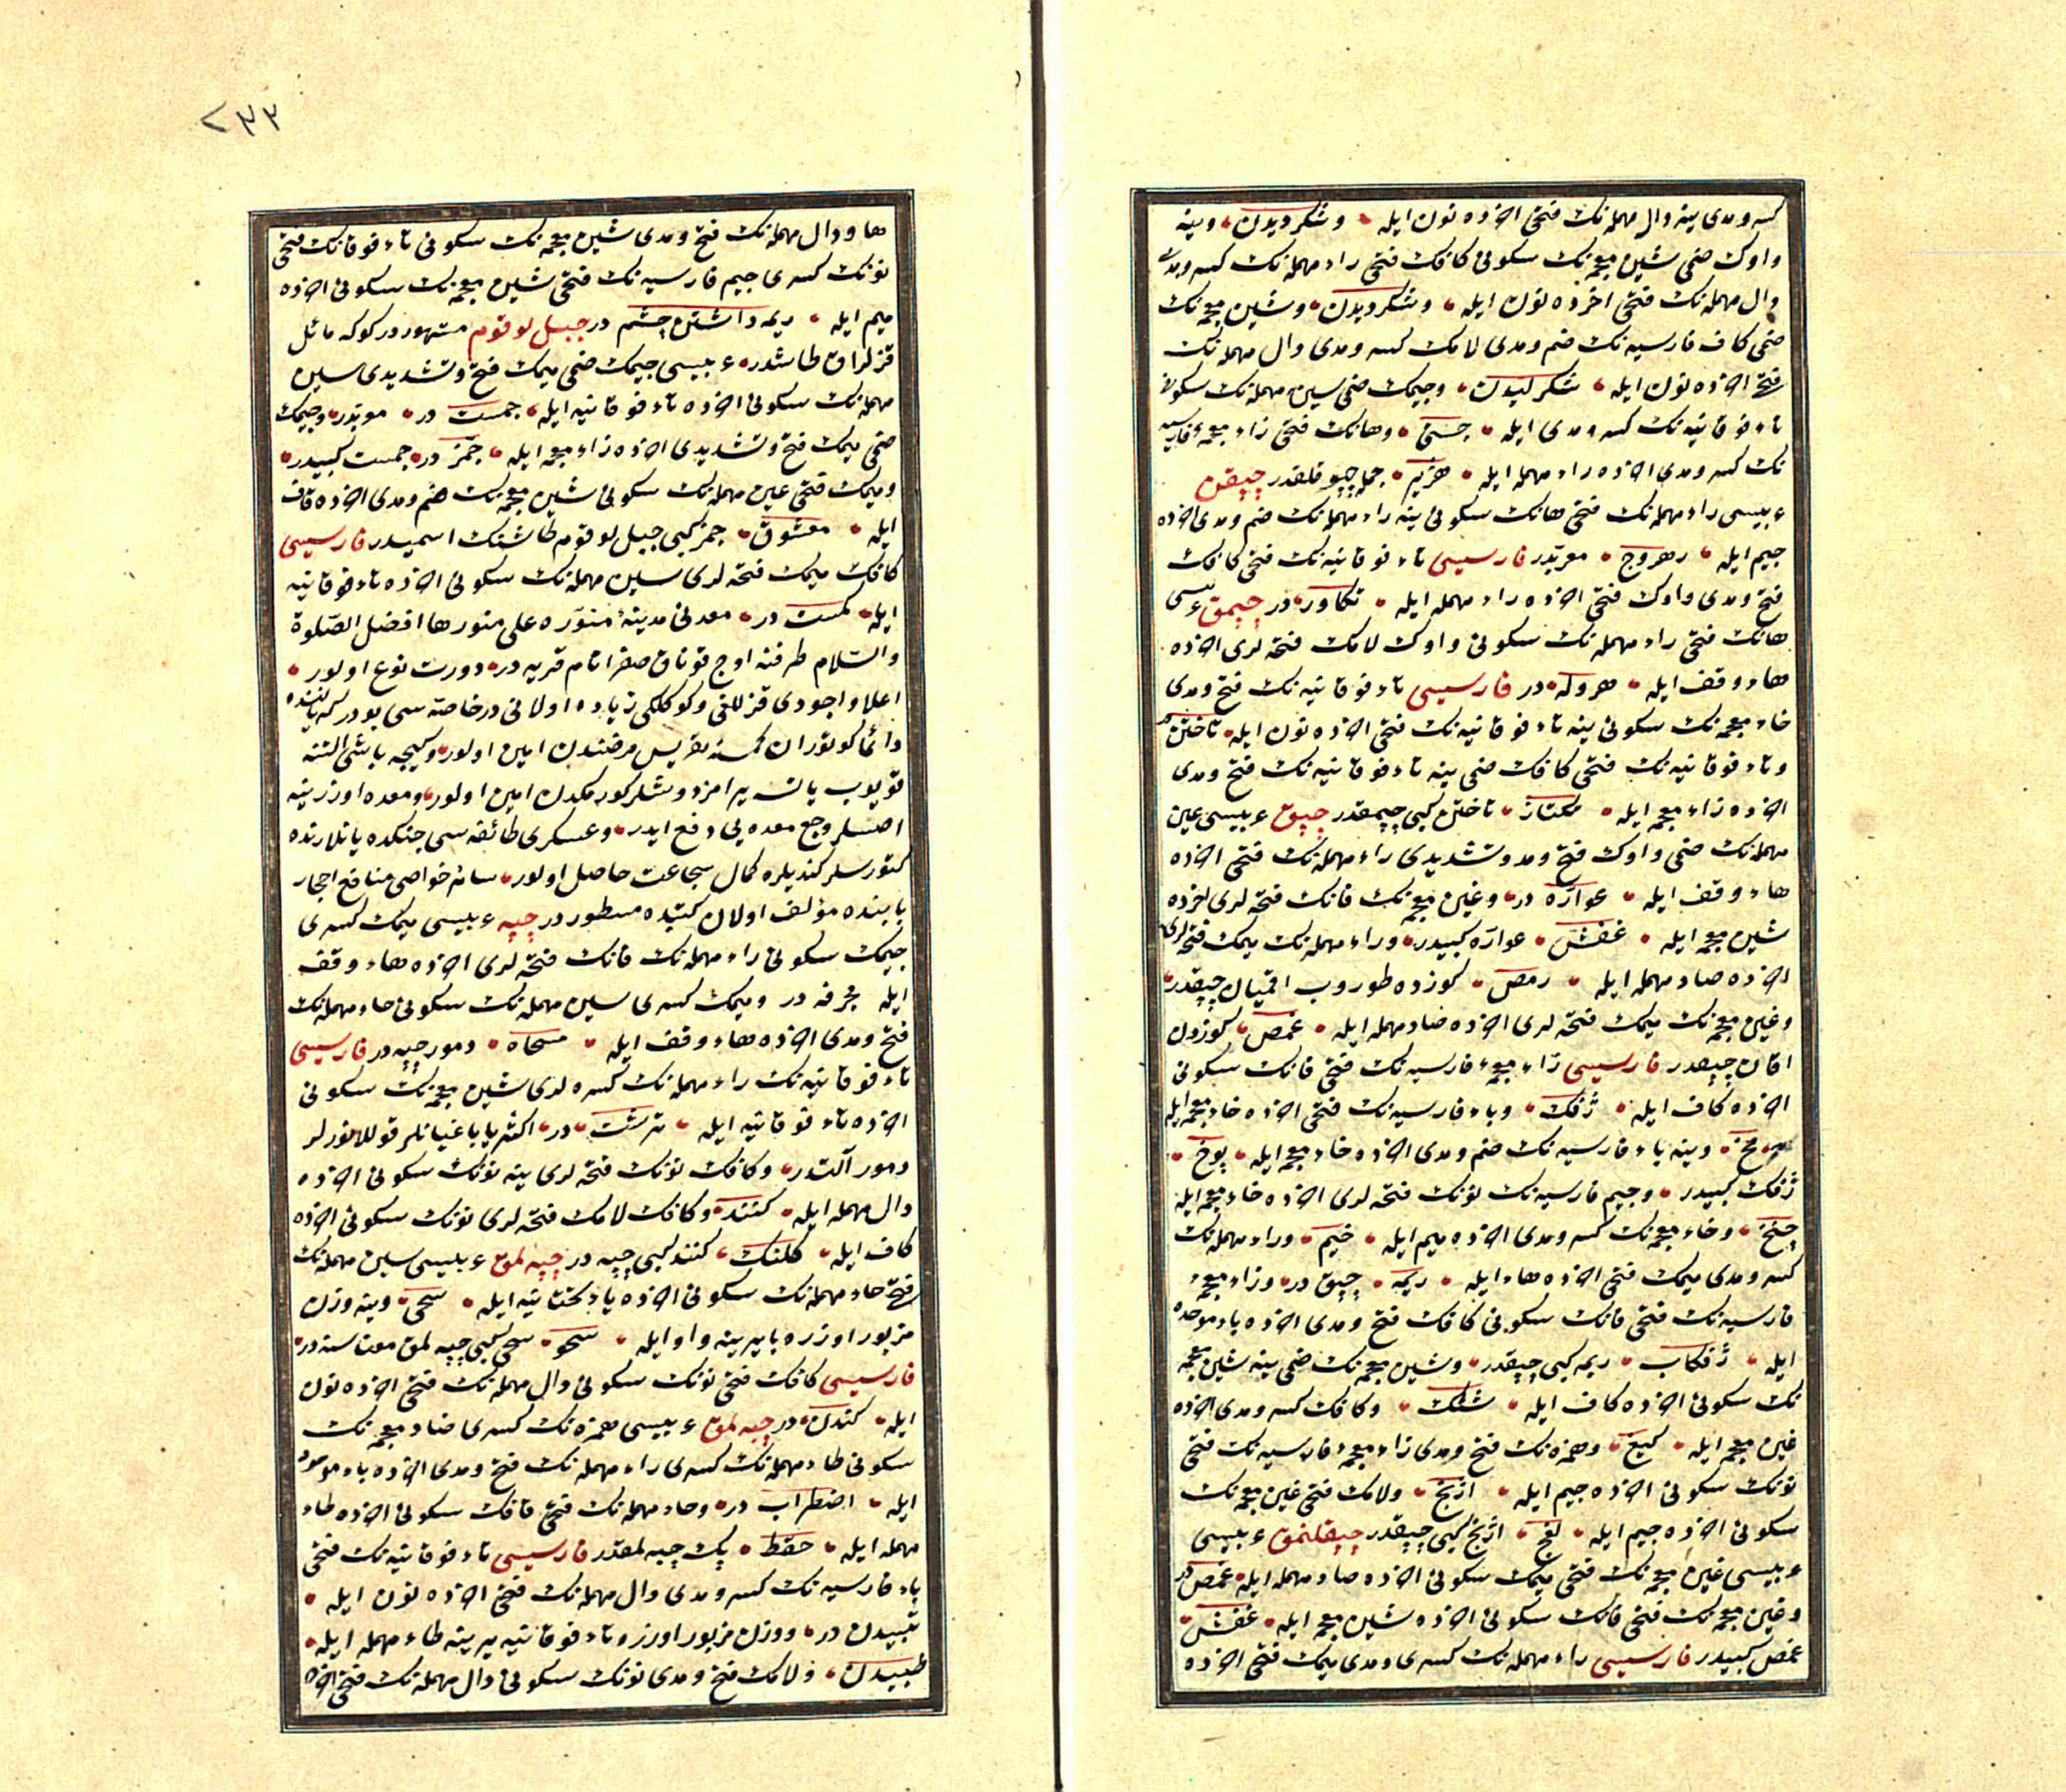 كسر و مدى ينه دال مهمله نك فتحى اخرده نون ايله وشكرديدن وينه
واوك ضمى شين معجمه نك سكونى كافك فتحى راء مهمله نك كسر ومدى
دال مهمله نك فتحى اخرده نون ايله وشكرديدن وشين معجمه نك
ضمى كاف فارسيه نك ضم ومدى لامك كسر ومدى دال مهمله نك
فتحى اخرده نون ايله شكرليدن وجيمك ضمى سين مهمله نك سكونى
تاء فوقانيه نك كسر ومدى ايله جستى وهانك فتحى زاء معجمهٔ فارسيه
نك كسر ومدى اخرده راء مهمله ايله هژير جمله چپوقلقدر چپقن
عربيسى راء مهمله نك فتحى هانك سكونى ينه راء مهمله نك ضم ومدى اخرده
جيم ايله رهروج معربدر فارسيسى تاء فوقانيه نك فتحى كافك
فتح ومدى واوك فتحى اخرده راء مهمله ايله تكاور در چپمق عربيسى
هانك فتحى راء مهمله نك سكونى واوك لامك فتحه لرى اخرده
هاء وقف ايله هروله در فارسيسى تاء فوقانيه نك فتح ومدى
خاء معجمه نك سكونى ينه تاء فوقانيه نك فتحى اخرده نون ايله تاختن در
وتاء فوقانيه نك فتحى كافك ضمى ينه تاء فوقانيه نك فتح ومدى
اخرده زاء معجمه ايله تكتاز تاختن كبى چپمقدر چپق عربيسى عين
مهمله نك ضمى واوك فتح ومد وتشديدى راء مهمله نك فتحى اخرده
هاء وقف ايله عوارّه در وغين معجمه نك فانك فتحه لرى اخرده
شين معجمه ايله غفش عوارّه كبيدر وراء مهمله نك ميمك فتحه لرى
اخرده صاد مهمله ايله رمص كوزده طوروب اقميان چپقدر
وغين معجمه نك ميمك فتحه لرى اخرده صاد مهمله ايله غمص كوزدن
اقان چپقدر فارسيسى زاء معجمهٔ فارسيه نك فتحى فانك سكونى
اخرده كاف ايله ژفك وباء فارسيه نك فتحى اخرده خاء معجمه ايله
پخ وينه باء فارسيه نك ضم ومدى اخرده خاء معجمه ايله پوخ
ژفك كبيدر وجيم فارسيه نك نونك فتحه لرى اخرده خاء معجمه ايله
چنخ وخاء معجمه نك كسر ومدى اخرده ميم ايله خيم وراء مهمله نك
كسر ومدى ميمك فتحى اخرده هاء ايله ريمه چپق در وزاء معجمهٔ
فارسيه نك فتحى فانك سكونى كافك فتح ومدى اخرده باء موحده
ايله ژفكاب ريمه كبى چپقدر وشين معجمه نك ضمى ينه شين معجمه
نك سكونى اخرده كاف ايله ششك وكافك كسر ومدى اخرده
غين معجمه ايله كيغ وهمزه نك فتح ومدى زاء معجمهٔ فارسيه نك فتحى
نونك سكونى اخرده جيم ايله اژنج ولامك فتحى غين معجمه نك
سكونى اخرده جيم ايله لغج اژنج كبى چپقدر چپقلنمق عربيسى
عربيسى غين معجمه نك فتحى ميمك سكونى اخرده صاد مهمله ايله غمص در
وغين معجمه نك فتحى فانك سكونى اخرده شين معجمه ايله غفش
غمص كبيدر فارسيسى راء مهمله نك كسرى ومدى ميمك فتحى اخرده
٢٣٣
ها ودال مهمله نك فتح ومدى شين معجمه نك سكونى تاء فوقانك فتحى
نونك كسرى جيم فارسيه نك فتحى شين معجمه نك سكونى اخرده
ميم ايله ريمه داشتن چشم در جبل لوقوم مشهور در كوكه مائل
قزلراق طاشدر عربيسى جيمك ضمى ميمك فتح وتشديدى سين
مهمله نك سكونى اخرده تاء فوقانيه ايله جمست در موبدر وجيمك
ضمى ميمك فتح وتشديدى اخرده زاء معجمه ايله جمّز در جمست كبيدر
وميمك فتحى عين مهمله نك سكونى شين معجمه نك ضم ومدى اخرده قاف
ايله معشوق جمز كبى جبل لوقوم طاشنك اسميدر فارسيسى
كافك ميمك فتحه لرى سين مهمله نك سكونى اخرده تاء فوقانيه
ايله كمست در معدنى مدينهٔ منوّره على منورها افضل الصّلوة
والسّلام طرفنه اوچ قوناق صفرا نام قريه در دورت نوع اولور
اعلا واجودى قزللغى وكوكلكى زياده اولانى در خاصه سى بودركه ياننده
دائما كوتوران كمسنه نقريس مرضندن امين اولور وكيجه باشى التنه
قويوب ياتسه پرامز دوشلر كورمكدن امين اولور ومعده اوزرينه
اصسلر وجع معده يى دفع ايدر وعسكرى طائفه سى جنكده يانلارنده
كتورسلر كنديلره كمال شجاعت حاصل اولور سائر خواصى منافع احجار
بابنده مؤلف اولان كتبده مسطوردر چپه عربيسى ميمك كسرى
جيمك سكونى راء مهمله نك فانك فتحه لرى اخرده هاء وقف
ايله مجرفه در وميمك كسرى سين مهمله نك سكونى حاء مهمله نك
فتح ومدى اخرده هاء وقف ايله مسحاه دمور چپه در فارسيسى
تاء فوقانيه نك راء مهمله نك كسره لرى شين معجمه نك سكونى
اخرده تاء فوقانيه ايله ترشت در اكثريا باغبانلر قوللانورلر
دمور آلتدر وكافك نونك فتحه لرى ينه نونك سكونى اخرده
دال مهمله ايله كنند وكافك لامك فتحه لرى نونك سكونى اخرده
كاف ايله كلنك كنند كبى چپه در چپه لمق عربيسى سين مهمله نك
فتحى حاء مهمله نك سكونى اخرده ياء تحتانيه ايله سحى وينه وزن
مزبور اوزره يا يرينه واو ايله سحو سحى كبى چپه لمق معناسنه در
فارسيسى كافك فتحى نونك سكونى دال مهمله نك فتحى اخرده نون
ايله كندن در چپه لمق عربيسى همزه نك كسرى ضاد معجمه نك
سكونى طاء مهمله نك كسرى راء مهمله نك فتح ومدى اخرده باء موحده
ايله اضطراب در وحاء مهمله نك فتحى قافك سكونى اخرده طاء
مهمله ايله حقط پك چپه لمقدر فارسيسى تاء فوقانيه نك فتحى
باء فارسيه نك كسر ومدى دال مهمله نك فتحى اخرده نون ايله
تپيدن در ووزن مزبور اوزره تاء فوقانيه يرينه طاء مهمله ايله
طپيدن ولامك فتح ومدى نونك سكونى دال مهمله نك فتحى اخرده